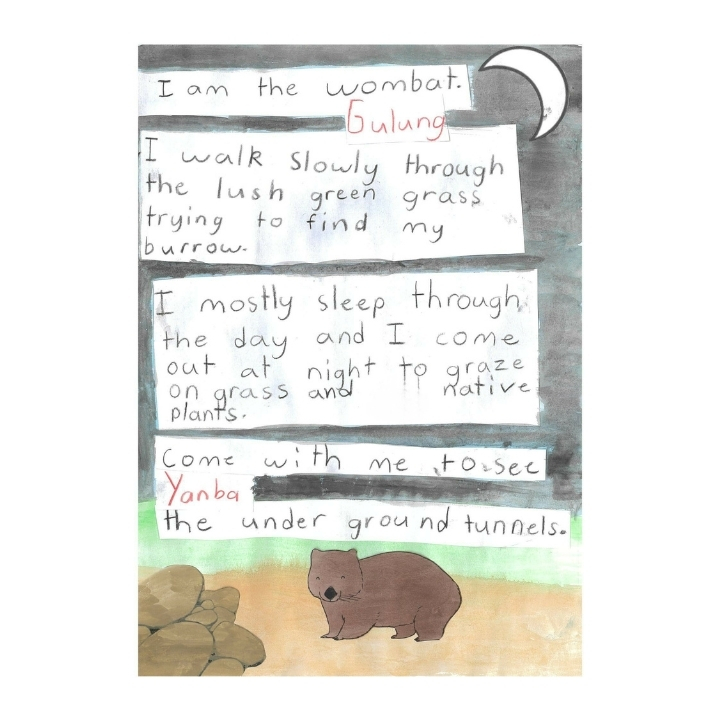 I am the wombat.
Gulung
I walk slowly through
the lush green grass
trying to find my
burrow.
I mostly sleep through
the day and I come
out at night to graze
on grass and native
plants.
Come with me to see
Yanba
the under ground tunnels.